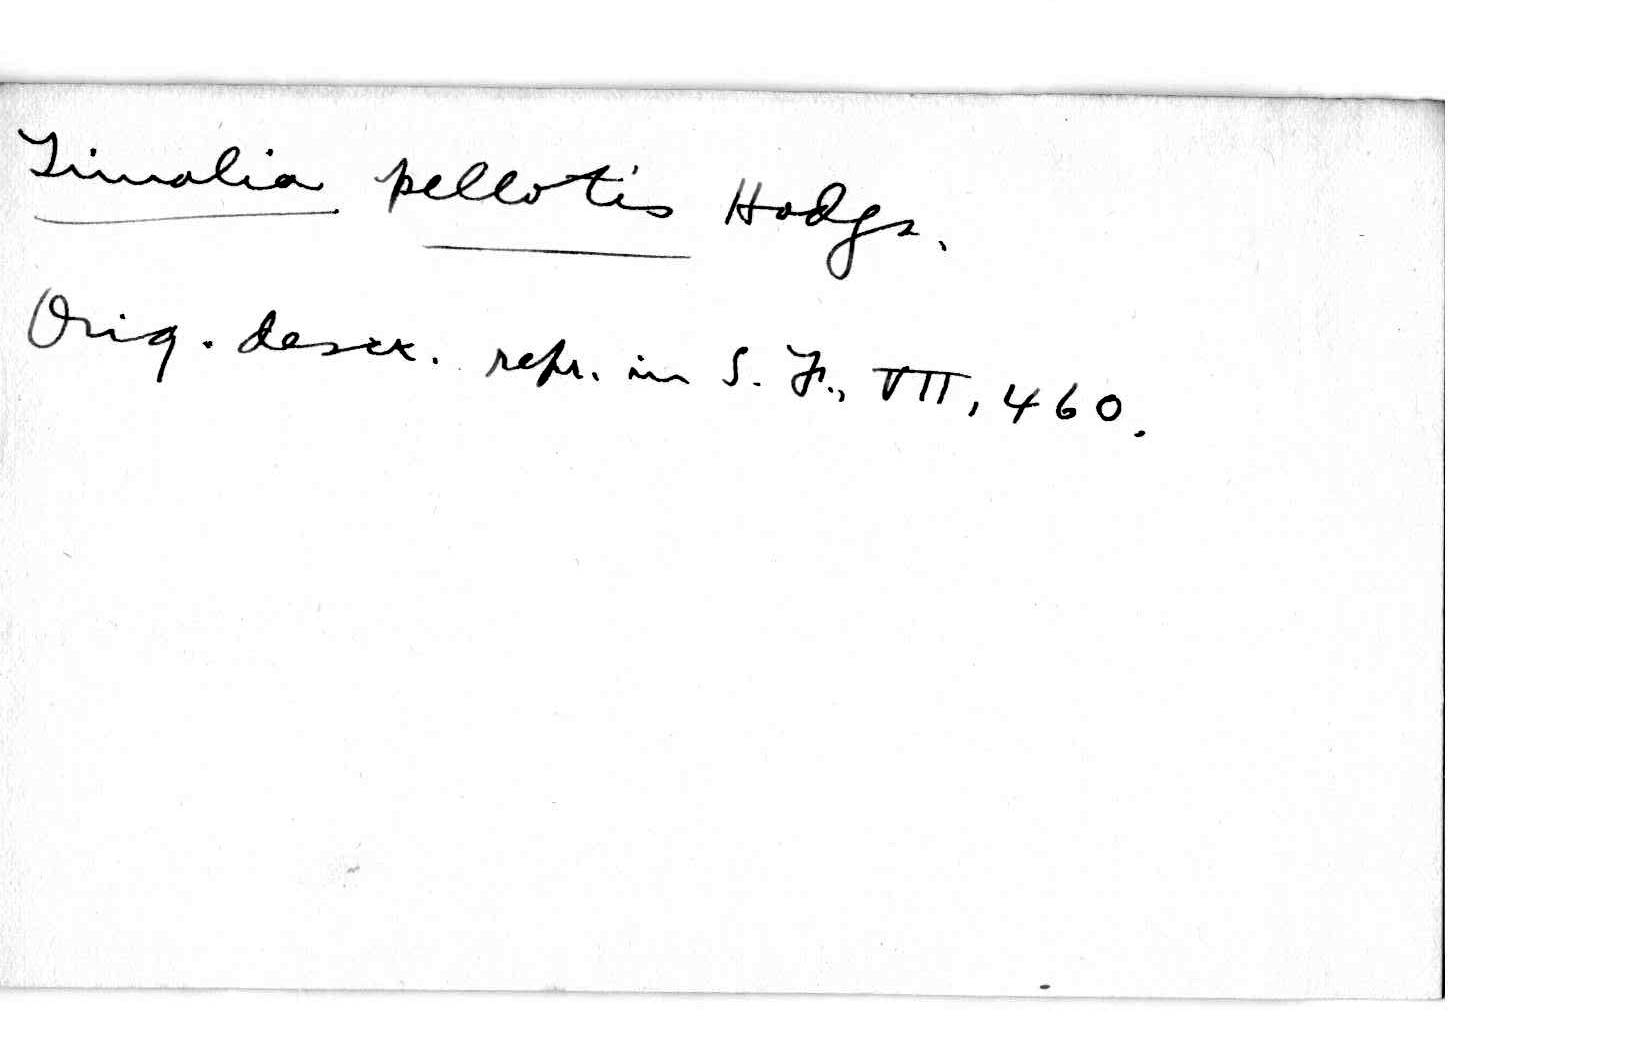 Timalia pellotis Hodgs.
Orig. descr. repr. in S. F., VII, 460.